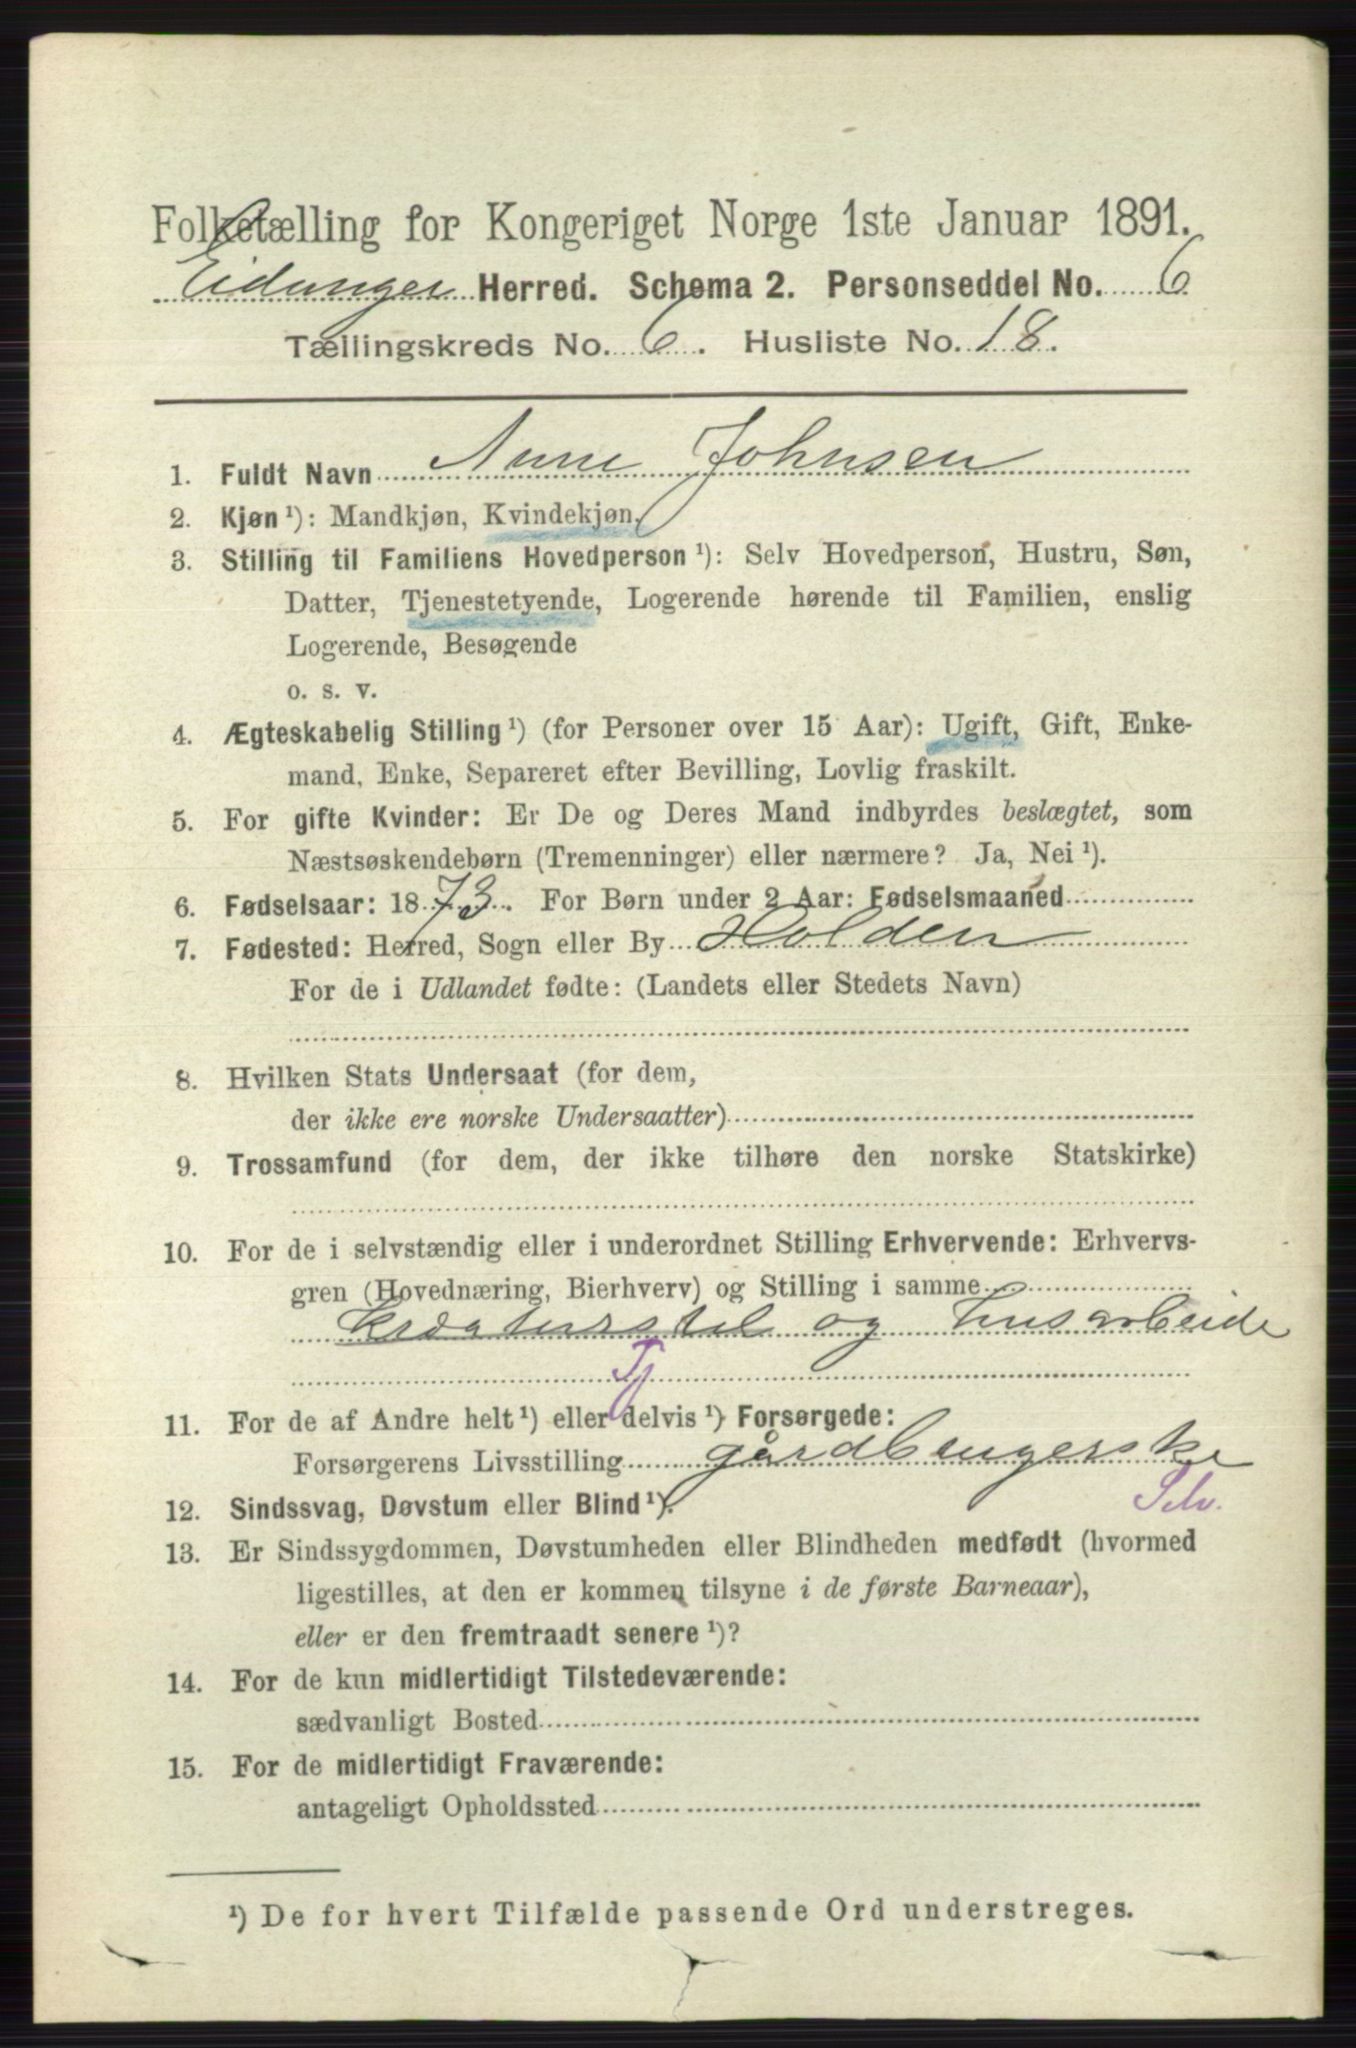 Folketælling for Kongeriget Norge 1ste Januar 1891.
Eidanger Herred. Schema 2. Personseddel No. 6
Tællingskreds No. 6. Husliste No. 18.
1. Fuldt Navn Anne Johnsen
2. Kjøn ¹): Mandkjøn, Kvindekjøn.
3. Stilling til Familiens Hovedperson ¹): Selv Hovedperson, Hustru, Søn,
Datter, Tjenestetyende, Logerende hørende til Familien, enslig
Logerende, Besøgende
o. s. v.
4. Ægteskabelig Stilling ¹) (for Personer over 15 Aar): Ugift, Gift, Enke-
mand, Enke, Separeret efter Bevilling, Lovlig fraskilt.
5. For gifte Kvinder: Er De og Deres Mand indbyrdes beslægtet, som
Næstsøskendebørn (Tremenninger) eller nærmere? Ja, Nei ¹).
6. Fødselsaar: 1873. For Børn under 2 Aar: Fødselsmaaned
7. Fødested: Herred, Sogn eller By Holden
For de i Udlandet fødte: (Landets eller Stedets Navn)
8. Hvilken Stats Undersaat (for dem,
der ikke ere norske Undersaatter)
9. Trossamfund (for dem, der ikke tilhøre den norske Statskirke)
10. For de i selvstændig eller i underordnet Stilling Erhvervende: Erhvervs-
gren (Hovednæring, Bierhverv) og Stilling i samme
kreaturstel og husarbeide
Tj
11. For de af Andre helt ¹) eller delvis ¹) Forsørgede:
Forsørgerens Livsstilling gårdbrugerske
Selv.
12. Sindssvag, Døvstum eller Blind ¹).
13. Er Sindssygdommen, Døvstumheden eller Blindheden medfødt (hvormed
ligestilles, at den er kommen tilsyne i de første Barneaar),
eller er den fremtraadt senere ¹)?
14. For de kun midlertidigt Tilstedeværende:
sædvanligt Bosted
15. For de midlertidigt Fraværende:
antageligt Opholdssted
¹) De for hvert Tilfælde passende Ord understreges.